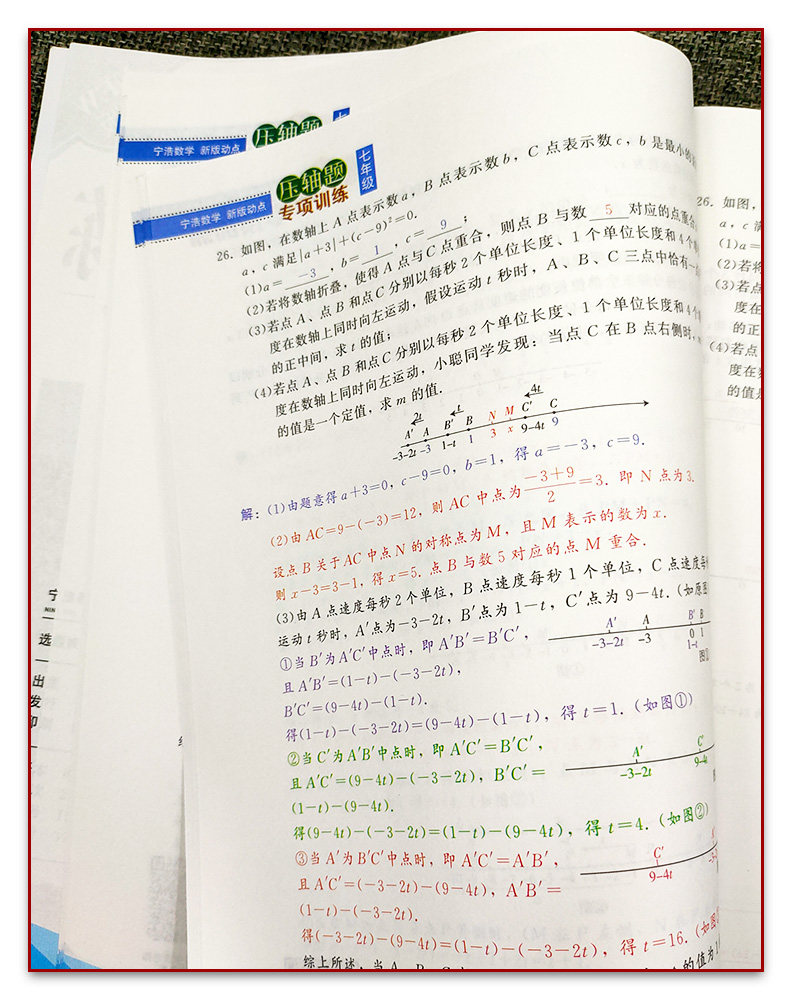 宁浩数学 新版动点
压轴题
七
宁浩数学 新版动点
压轴题
专项训练
七年级
26. 如图，在数轴上 A 点表示数 a，B 点表示数 b，C 点表示数 c，b 是最小的
a，c 满足|a+3|+(c-9)²=0.
(1)a= -3 ，b= 1 ，c= 9 ；
(2)若将数轴折叠，使得 A 点与 C 点重合，则点 B 与数 5 对应的点重合
(3)若点 A、点 B 和点 C 分别以每秒 2 个单位长度、1 个单位长度和 4 个
度在数轴上同时向左运动，假设运动 t 秒时，A、B、C 三点中恰有一
的正中间，求 t 的值；
(4)若点 A、点 B 和点 C 分别以每秒 2 个单位长度、1 个单位长度和 4 个
度在数轴上同时向左运动，小聪同学发现：当点 C 在 B 点右侧时，
的值是一个定值，求 m 的值.
2t t 4t
A′ A B′ B N M C′ C
-3-2t -3 1-t 1 3 x 9-4t 9
解：(1)由题意得 a+3=0，c-9=0，b=1，得 a=-3，c=9.
(2)由 AC=9-(-3)=12，则 AC 中点为 (-3+9)/2=3. 即 N 点为3.
设点 B 关于 AC 中点 N 的对称点为 M，且 M 表示的数为 x.
则 x-3=3-1，得 x=5. 点 B 与数 5 对应的点 M 重合.
(3)由 A 点速度每秒 2 个单位，B 点速度每秒 1 个单位，C 点速度每
运动 t 秒时，A′点为-3-2t，B′点为 1-t，C′点为 9-4t.(如原图
①当 B′为 A′C′中点时，即 A′B′=B′C′，
且 A′B′=(1-t)-(-3-2t)，
B′C′=(9-4t)-(1-t).
A′ A B′ B
-3-2t -3 0 1
1-t
得(1-t)-(-3-2t)=(9-4t)-(1-t)，得 t=1.(如图①)
②当 C′为 A′B′中点时，即 A′C′=B′C′，
且 A′C′=(9-4t)-(-3-2t)，B′C′=
(1-t)-(9-4t).
A′ C′
-3-2t 9-4t
得(9-4t)-(-3-2t)=(1-t)-(9-4t)，得 t=4.(如图②)
③当 A′为 B′C′中点时，即 A′C′=A′B′，
且 A′C′=(-3-2t)-(9-4t)，A′B′=
(1-t)-(-3-2t).
C′
9-4t
得(-3-2t)-(9-4t)=(1-t)-(-3-2t)，得 t=16.(如图
综上所述，当 A
的值为
26. 如图，
a，c 满
(1)a=
(2)若将
(3)若点
度在
的正中
(4)若点
度在数
的值是
选
一
出
发
印